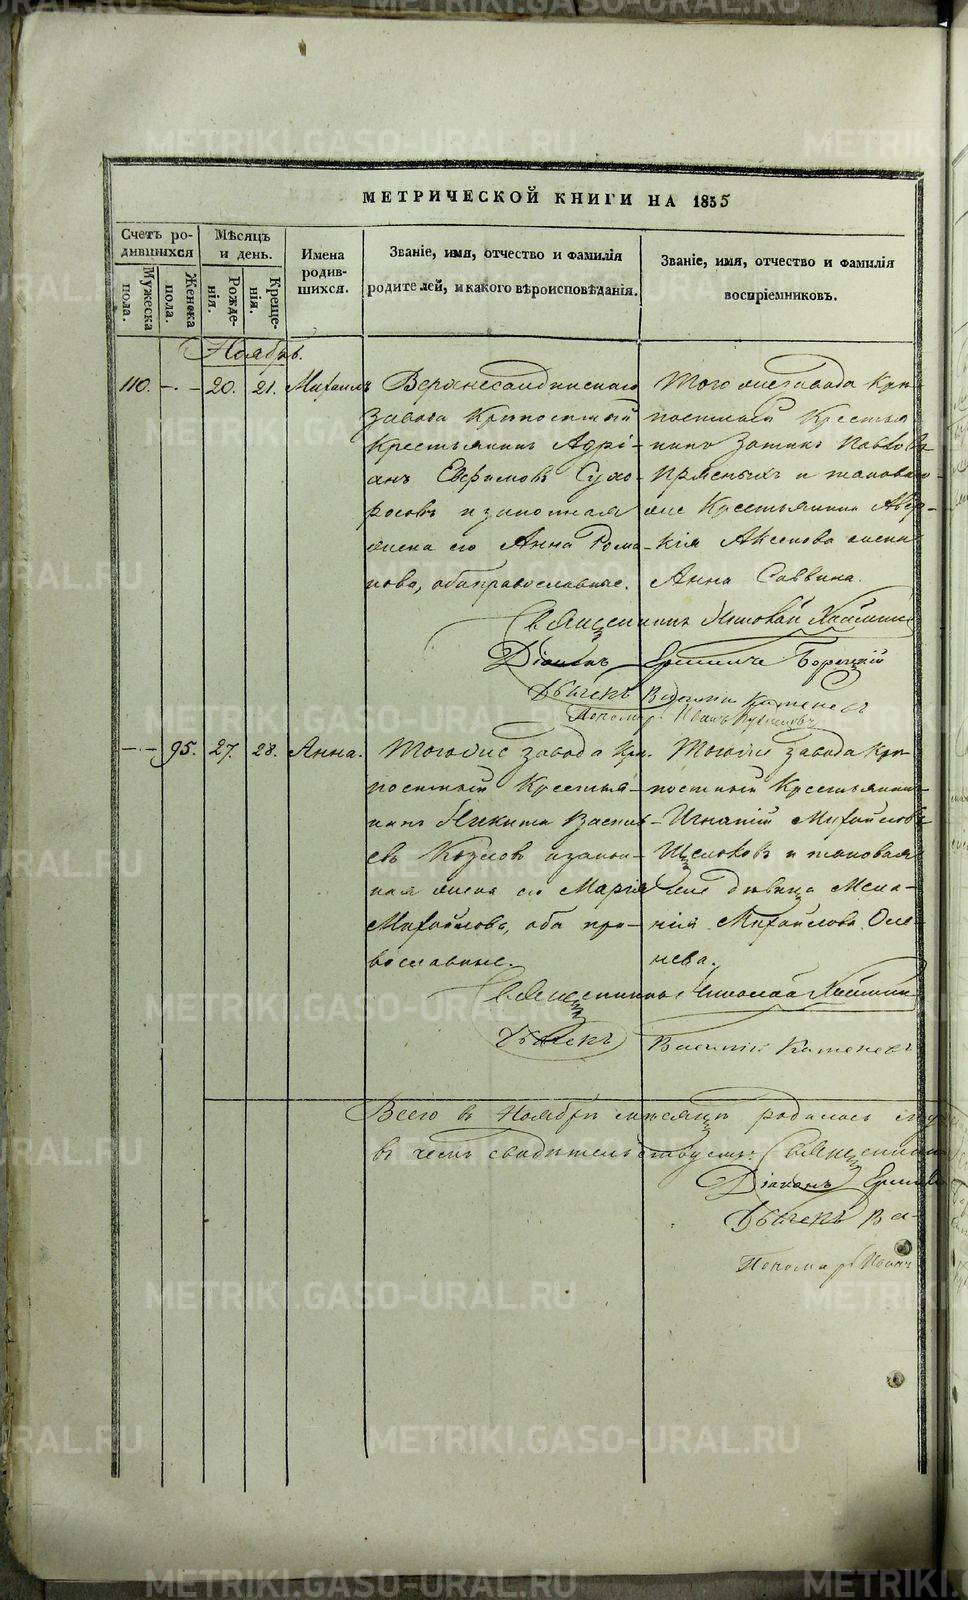 МЕТРИЧЕСКОЙ КНИГИ НА 1855
Счетъ ро-
дившихся
Мужеска пола.
Женска пола.
Мѣсяцъ
и день.
Рожде-
нія.
Креще-
нія.
Имена
родив-
шихся.
Званіе, имя, отчество и фамилія
родителей, и какого вѣроисповѣданія.
Званіе, имя, отчество и фамилія
воспріемниковъ.
Ноябрь.
110. - - 20. 21. Михаилъ
Верхнесалдинскаго
завода Крѣпостный
Крестьянинъ Адрі-
анъ Ефимовъ Сухо-
росовъ и законная
жена его Анна Рома-
нова, оба православные.
Того же завода Крѣ-
постной Крестья-
нинъ Зотикъ Павловъ
Пряныхъ и таковаго-
же Крестьянина Авер-
кія Аксенова жена
Анна Саввина.
Священникъ Николай
Діаконъ Борецкій
Дьячекъ Василій Катеневъ
Пономарь Иванъ
- - 95. 27. 28. Анна.
Того же завода Крѣ-
постный Крестья-
нинъ Никита Василь-
евъ Козловъ и закон-
ная жена его Марія
Михайлова, оба пра-
вославные.
Того же завода Крѣ-
постный Крестьянинъ
Игнатій Михайловъ
Щелоковъ и таковая
же дѣвица Мела-
нія Михайлова Оле-
нева.
Священникъ Николай
Дьячекъ Василій Катеневъ
Всего въ Ноябрѣ мѣсяцѣ родилось
въ чемъ свидѣтельствуемъ: Священникъ
Діаконъ
Дьячекъ Ва-
Пономарь Иванъ
METRIKI.GASO-URAL.RU